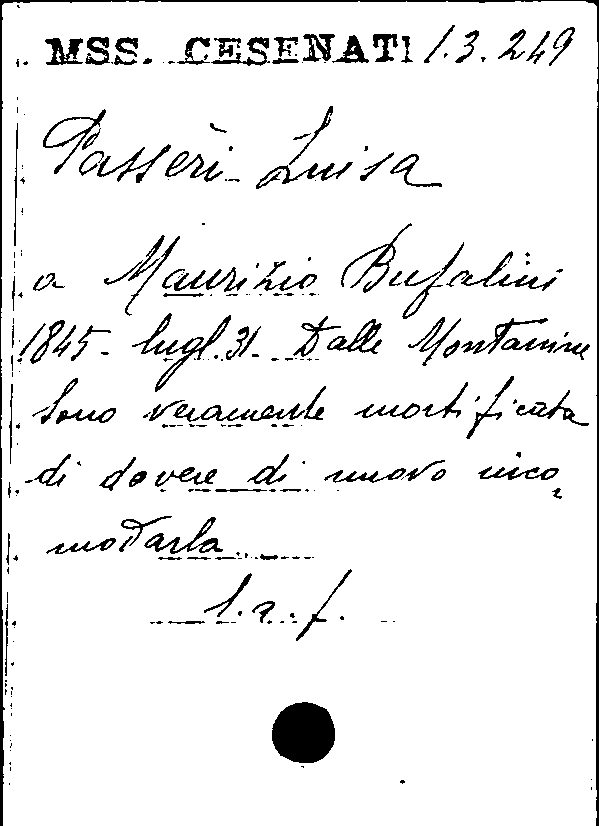 MSS. CESENATI 1.3.249
Passeri Luisa
a Maurizio Bufalini
1845- lugl. 31- Dalle Montanine
Sono veramente mortificata
di dovere di nuovo inco,
modarla
l. a. f.